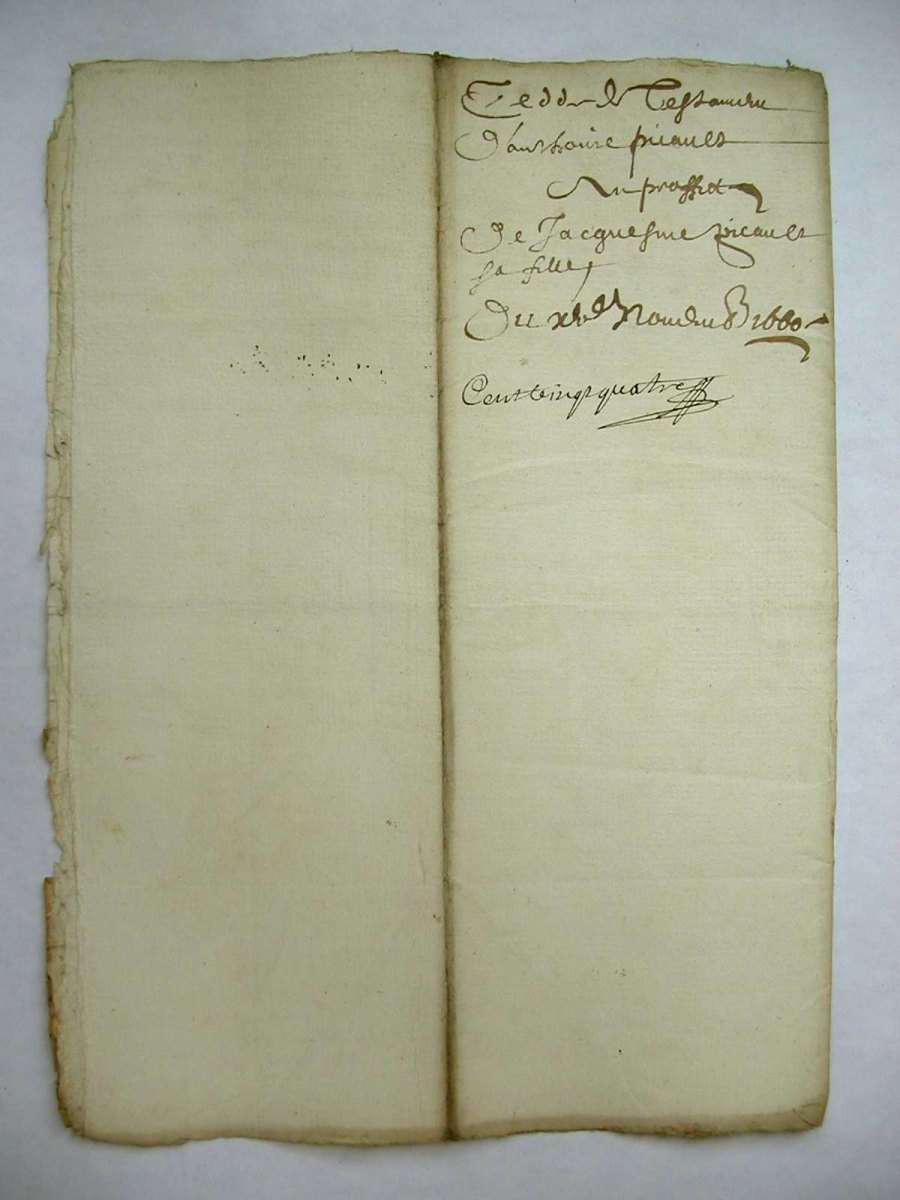 de Testament
d'anthoine picault
Au proffict
De Jacquesme picault
sa fille
Du xve Novembre 1660
Cent vingt quatre